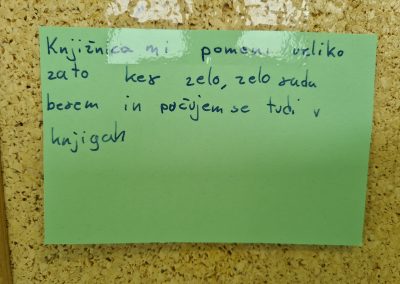 Knjižnica mi pomeni veliko
zato ker zelo, zelo rada
berem in počujem se tudi v
knjigah